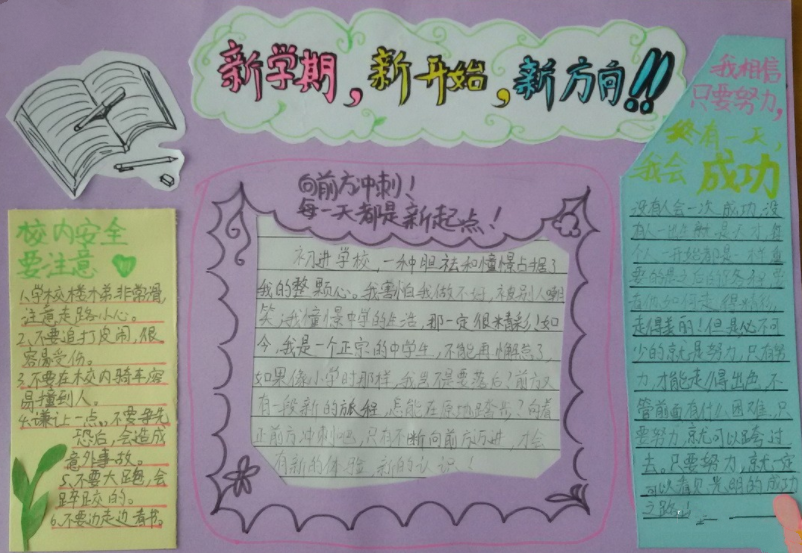 新学期,新开始,新方向!!
我相信
只要努力,
终有一天,
我会 成功
向前方冲刺!
每一天都是新起点!
初进学校,一种胆祛和憧憬占据了
我的整颗心。我害怕我做不好,被别人嘲
笑,我憧憬中学的生活,那一定很精彩!如
今,我是一个正宗的中学生,不能再懒惰了,
如果像小学时那样,我岂不是要落后?前方又
有一段新的旅程,怎能在原地踏步?向着
正前方冲刺吧,只有不断向前方迈进,才会
有新的体验,新的认识!
校内安全
要注意
1.学校楼梯非常滑,
注意走路小心。
2、不要追打皮闹,很
容易受伤。
3.不要在校内骑车容
易撞到人。
4.谦让一点。不要争先
恐后,会造成
意外事故。
5.不要大跑,会
跌跤的。
6.不要边走边看书。
没有人会一次成功,没
有人一
一开始都是
走得美的!但是必不可
少的就是努力,只有努
力,才能走得出色,不
管前面有什么困难,只
要努力,就可以跨过
去。只要努力,就一定
可以看见光明的成功
之路!